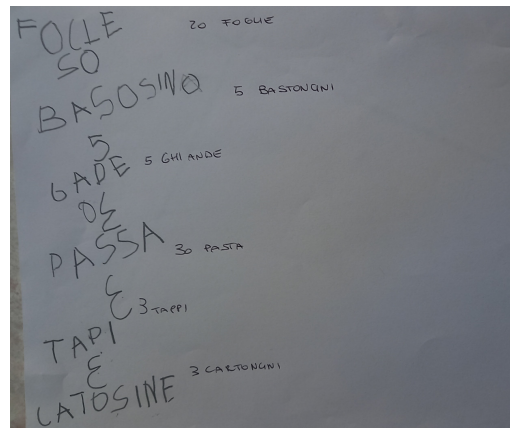 FOGLE 20 FOGLIE
SO
BASOSINO 5 BASTONCINI
5
GADE 5 GHIANDE
0Ɛ
PASSA 30 PASTA
Ɛ 3 TAPPI
TAPI
Ɛ 3 CARTONCINI
CATOSINE